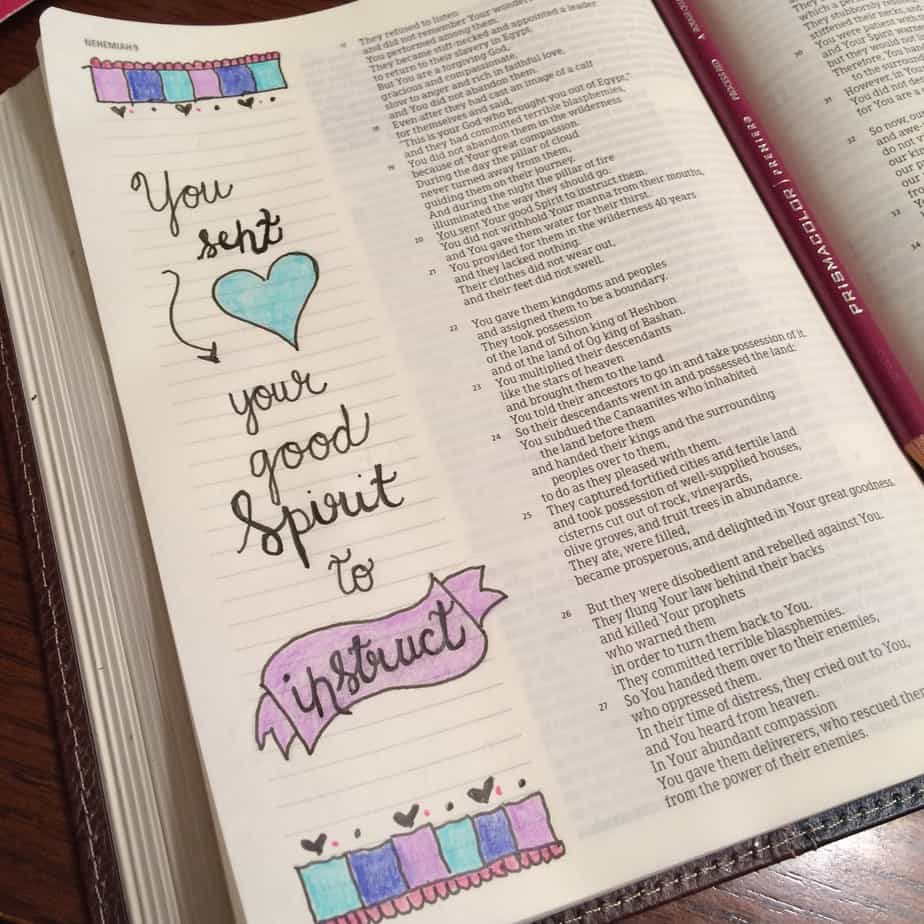 NEHEMIAH 9
You
sent
your
good
Spirit
to
instruct
17 They refused to listen
and did not remember Your wonders
You performed among them.
They became stiff-necked and appointed a leader
to return to their slavery in Egypt.
But You are a forgiving God,
gracious and compassionate,
slow to anger and rich in faithful love,
and You did not abandon them.
18 Even after they had cast an image of a calf
for themselves and said,
"This is your God who brought you out of Egypt,"
and they had committed terrible blasphemies,
19 You did not abandon them in the wilderness
because of Your great compassion.
During the day the pillar of cloud
never turned away from them,
guiding them on their journey.
And during the night the pillar of fire
illuminated the way they should go.
20 You sent Your good Spirit to instruct them.
You did not withhold Your manna from their mouths,
and You gave them water for their thirst.
21 You provided for them in the wilderness 40 years
and they lacked nothing.
Their clothes did not wear out,
and their feet did not swell.
22 You gave them kingdoms and peoples
and assigned them to be a boundary.
They took possession
of the land of Sihon king of Heshbon
and of the land of Og king of Bashan.
23 You multiplied their descendants
like the stars of heaven
and brought them to the land
You told their ancestors to go in and take possession of it.
24 So their descendants went in and possessed the land:
You subdued the Canaanites who inhabited
the land before them
and handed their kings and the surrounding
peoples over to them,
to do as they pleased with them.
25 They captured fortified cities and fertile land
and took possession of well-supplied houses,
cisterns cut out of rock, vineyards,
olive groves, and fruit trees in abundance.
They ate, were filled,
became prosperous, and delighted in Your great goodness.
26 But they were disobedient and rebelled against You.
They flung Your law behind their backs
and killed Your prophets
who warned them
in order to turn them back to You.
They committed terrible blasphemies.
27 So You handed them over to their enemies,
who oppressed them.
In their time of distress, they cried out to You,
and You heard from heaven.
In Your abundant compassion
You gave them deliverers, who rescued them
from the power of their enemies.
PRISMACOLOR | PREMIER
30
31
32 So now, our
33
34